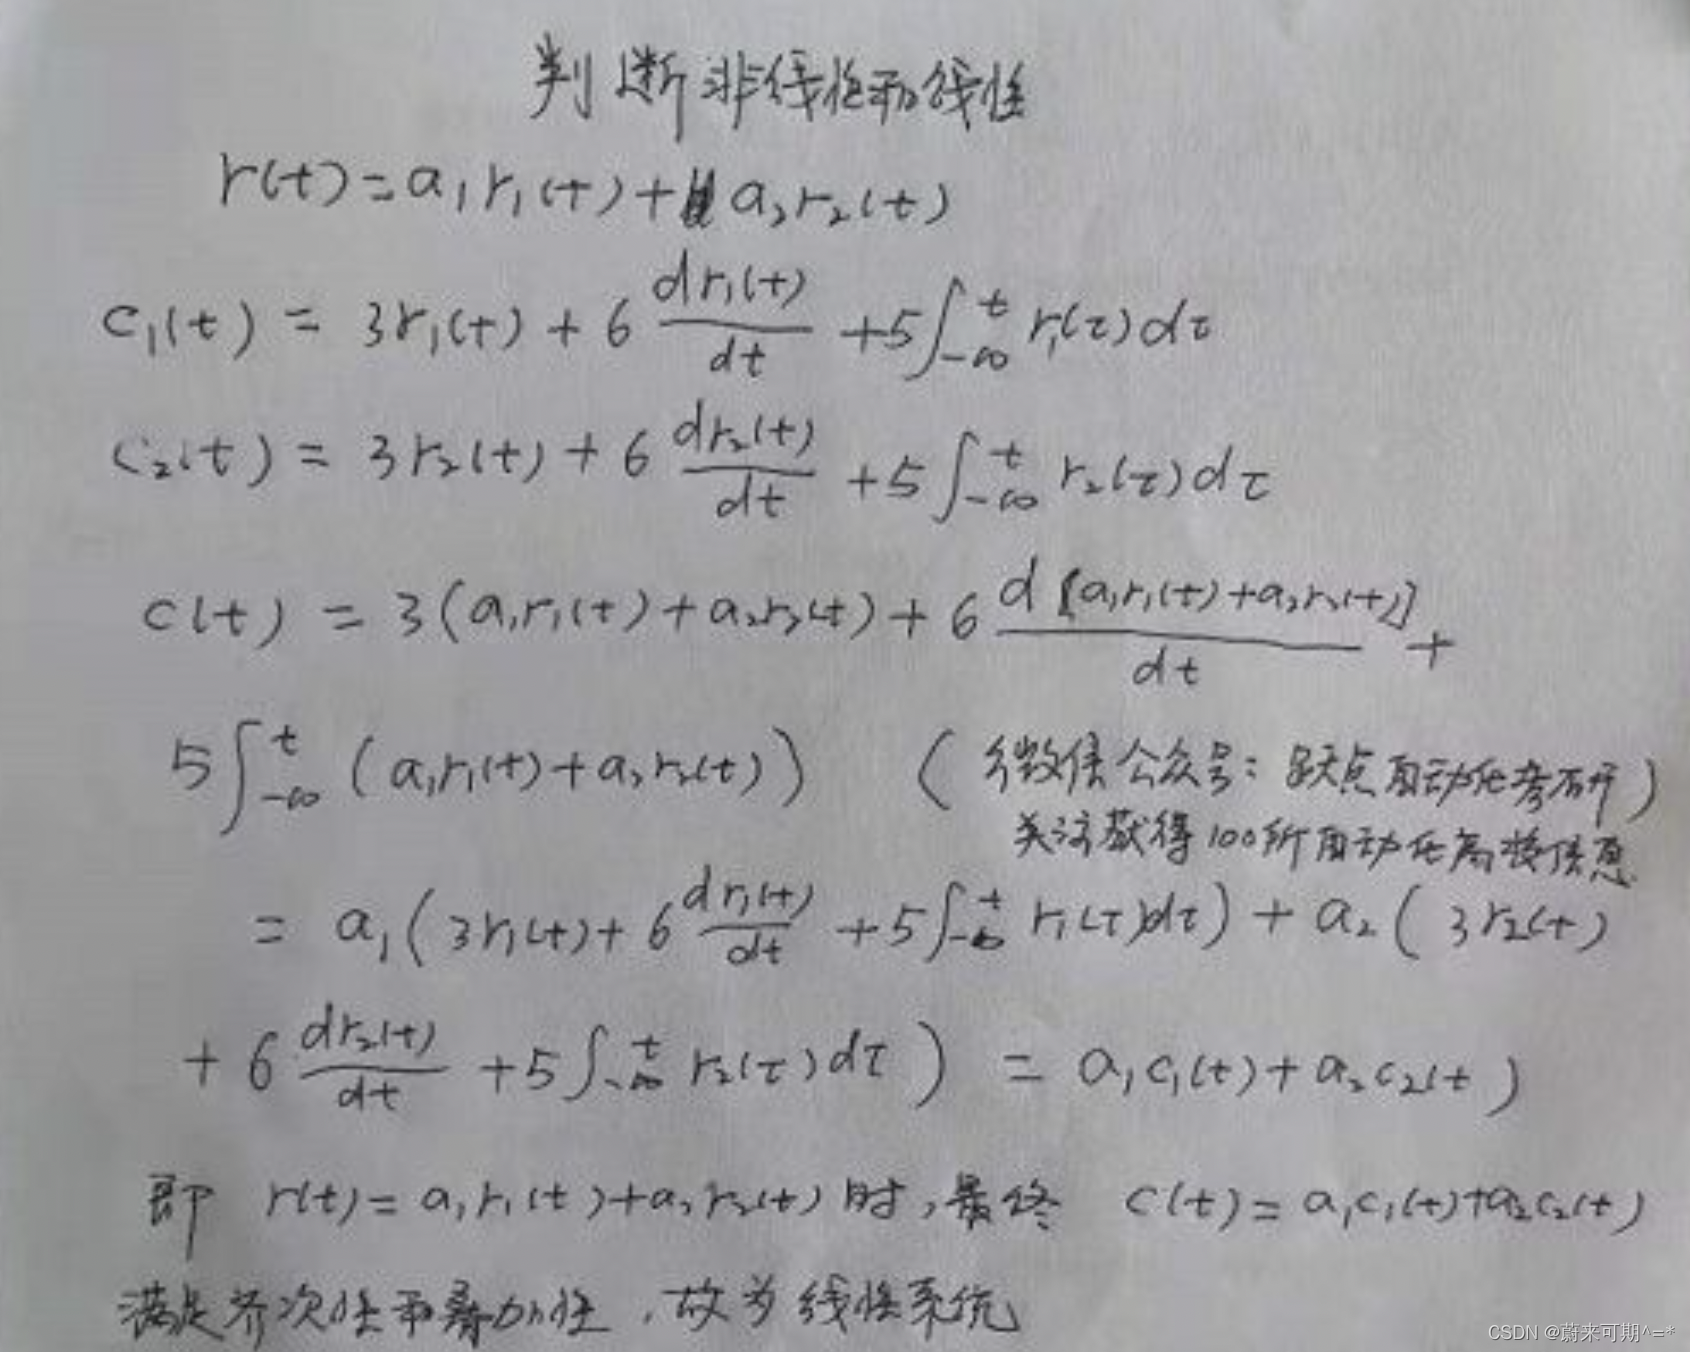 判断非线性和线性
r(t)=a₁r₁(t)+a₂r₂(t)
c₁(t) = 3r₁(t) + 6 dr₁(t)/dt +5∫_{-∞}^{t} r₁(τ)dτ
c₂(t) = 3r₂(t) + 6 dr₂(t)/dt +5∫_{-∞}^{t} r₂(τ)dτ
c(t) = 3(a₁r₁(t)+a₂r₂(t)) + 6 d[a₁r₁(t)+a₂r₂(t)]/dt +
5∫_{-∞}^{t} (a₁r₁(t)+a₂r₂(t)) (微信公众号：点自动化考研)
关注获得100所自动化高校信息
= a₁(3r₁(t)+6 dr₁(t)/dt +5∫_{-∞}^{t} r₁(τ)dτ) + a₂(3r₂(t)
+6 dr₂(t)/dt +5∫_{-∞}^{t} r₂(τ)dτ) = a₁c₁(t)+a₂c₂(t)
即 r(t)=a₁r₁(t)+a₂r₂(t)时,最终 c(t)=a₁c₁(t)+a₂c₂(t)
满足齐次性和叠加性,故为线性系统
CSDN @蔚来可期^=*